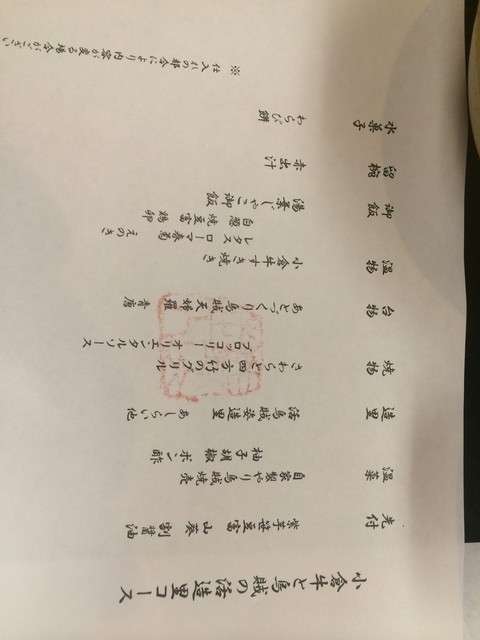 小倉牛と烏賊の活造里コース
先付 紫芋笹豆富 山葵 割醤油
温菜 自家製やり烏賊焼売
柚子胡椒 ポン酢
造里 活烏賊姿造里 あしらい他
焼物 さわらと四方竹のグリル
ブロッコリー オリエンタルソース
台物 あとづくり烏賊天婦羅 青唐
温物 小倉牛すき焼き
レタス ローマ春菊 えのき
白葱 焼豆富 鶏卵
御飯 湯葉じゃこ御飯
留椀 赤出汁
水菓子 わらび餅
※ 仕入れの都合により内容が変る場合がござい